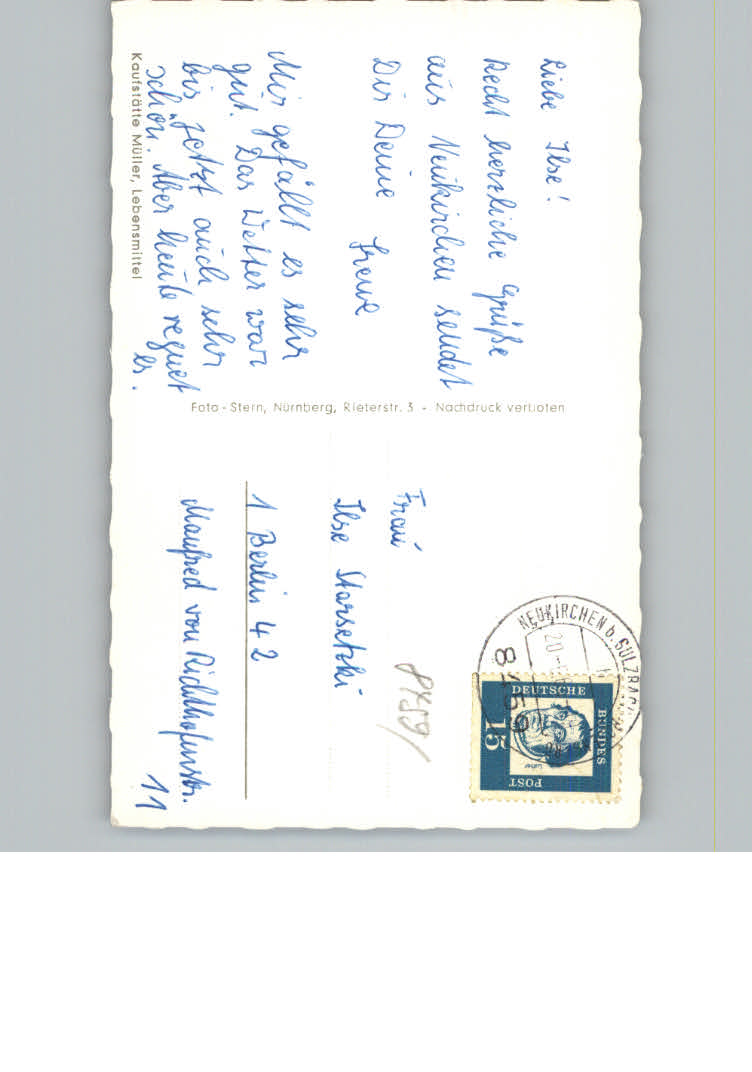 Liebe Ilse!
Recht herzliche Grüße
aus Neukirchen sendet
Dir Deine Irene
Mir gefällt es sehr
gut. Das Wetter war
bis jetzt auch sehr
schön. Aber heute regnet
es.
Kaufstätte Müller, Lebensmittel
Foto-Stern, Nürnberg, Rieterstr. 3 - Nachdruck verboten
Frau
Ilse Starsetzki
1 Berlin 42
Manfred von Richthofenstr.
11
8459/
NEUKIRCHEN b. SULZBACH
8459
DEUTSCHE
BUNDES
POST
15
Luther